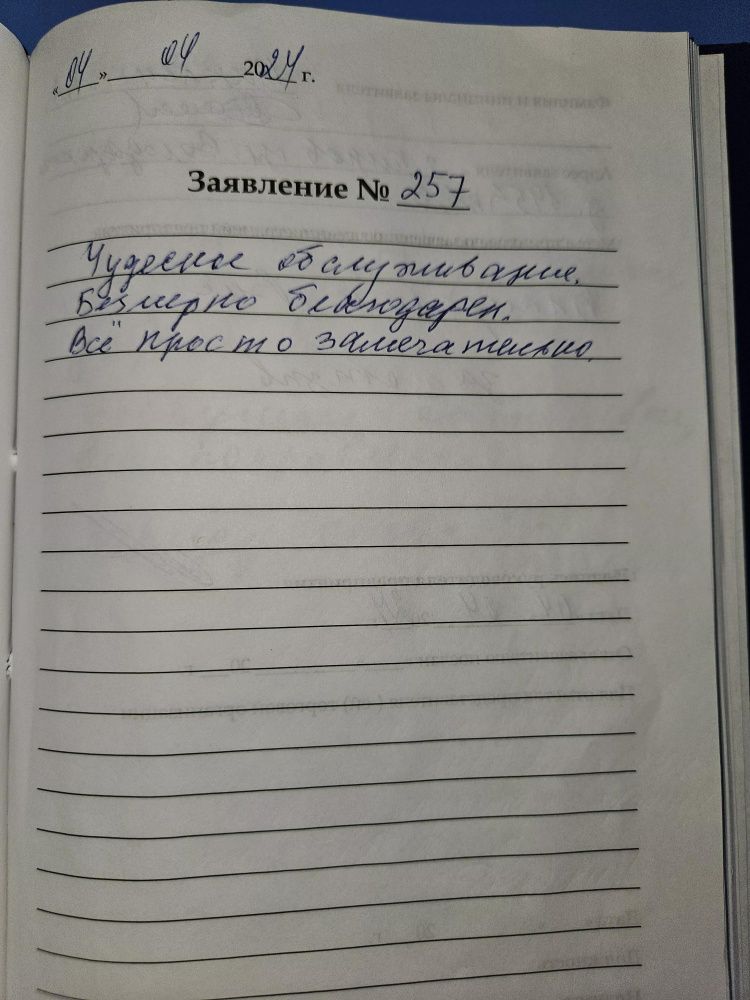 «04» 04 2024 г.
Заявление № 257
Чудесное обслуживание.
Безмерно благодарен.
Всё просто замечательно.